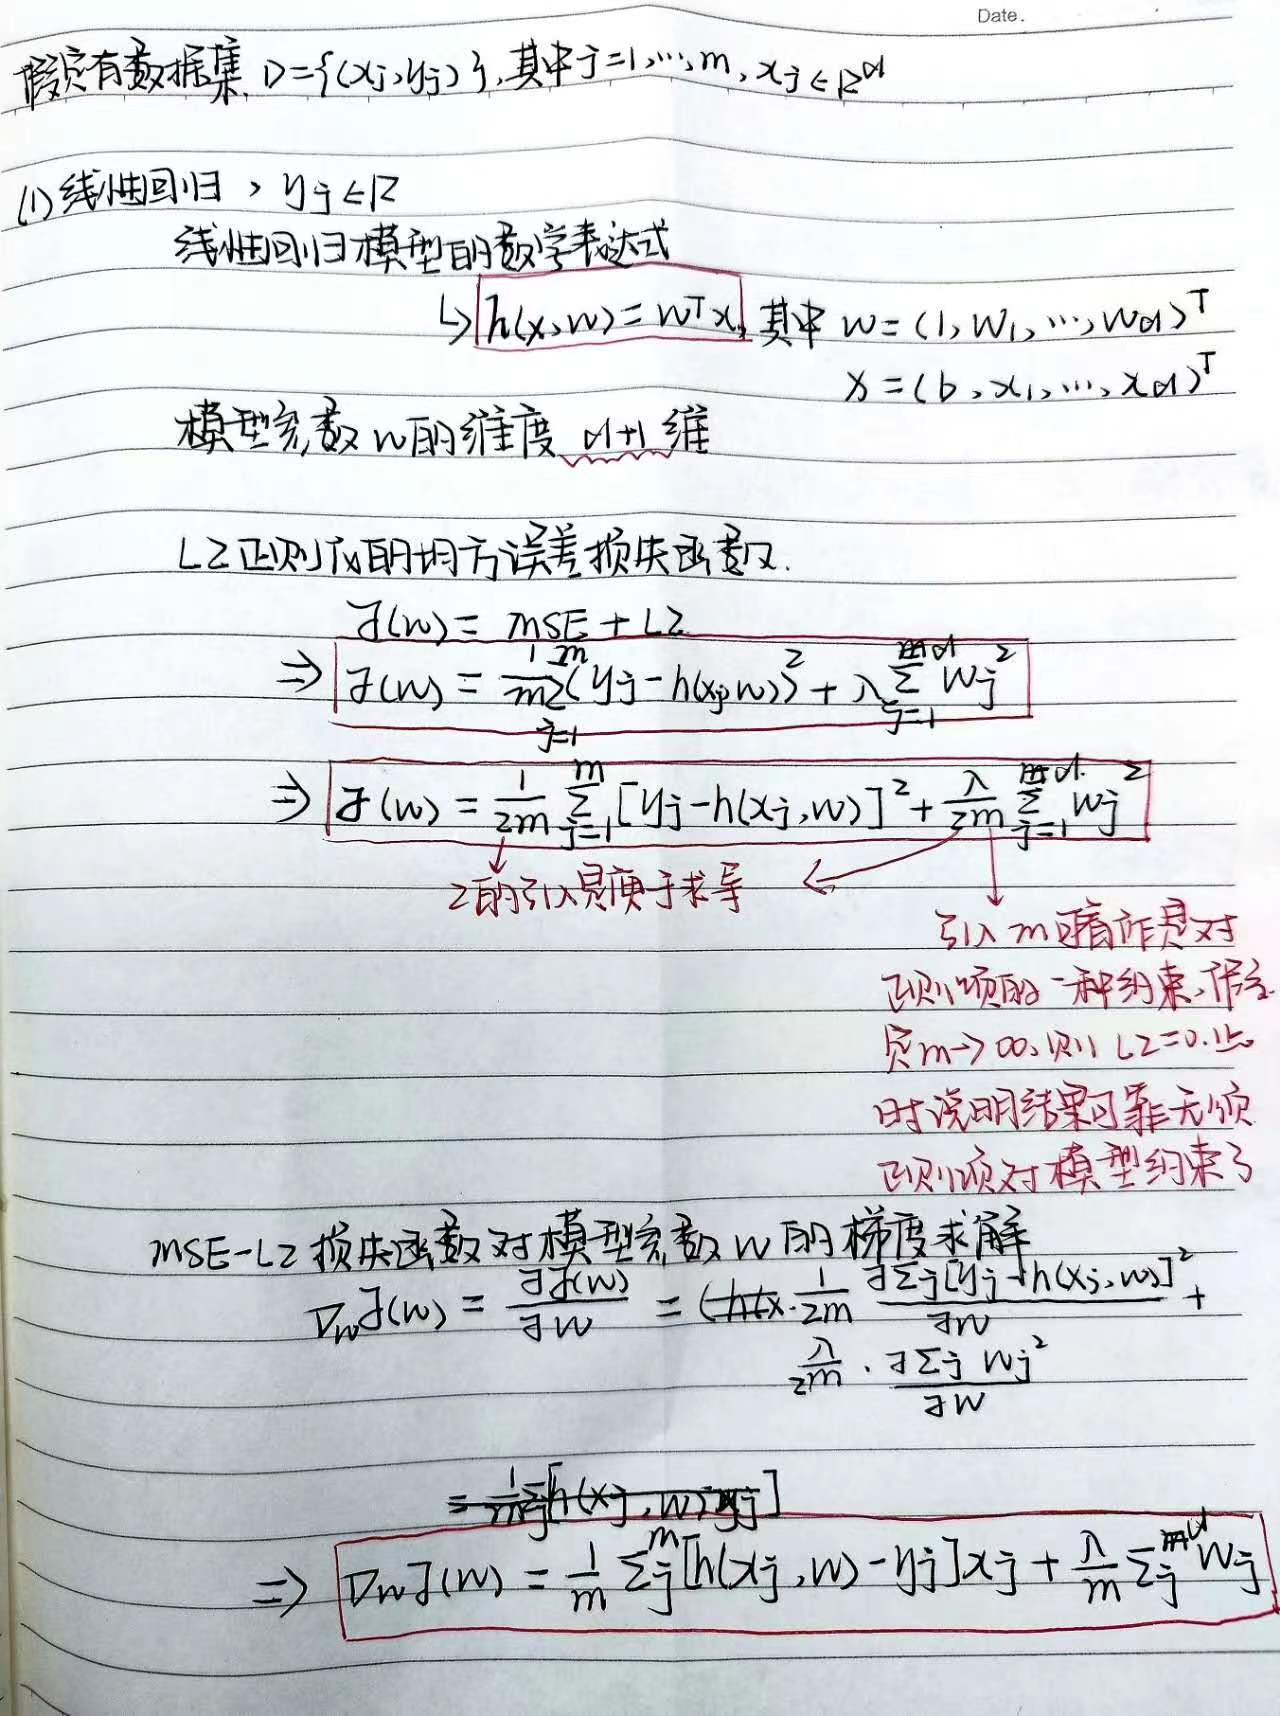 Date.
假定有数据集 D={(xj,yj)},其中j=1,…,m, xj∈R^d
(1)线性回归, yj∈R
线性回归模型的数学表达式
↳ h(x,w)=w^T x, 其中 w=(1,w1,…,wd)^T
x=(b,x1,…,xd)^T
模型参数w的维度 d+1维
L2正则项的均方误差损失函数.
J(w) = MSE + L2
⇒ J(w) = 1/m Σ_{j=1}^{m} (yj-h(xj,w))^2 + λ Σ_{j=1}^{d} wj^2
⇒ J(w) = 1/2m Σ_{j=1}^{m} [yj-h(xj,w)]^2 + λ/2m Σ_{j=1}^{d} wj^2
2的引入是便于求导
引入m可看作是对
正则项的一种约束,假
定m→∞,则L2=0.此
时说明结果可靠无须
正则项对模型约束了
MSE-L2损失函数对模型参数w的梯度求解
∇wJ(w) = ∂J(w)/∂w = 1/2m ∂Σj[yj-h(xj,w)]^2/∂w +
λ/2m · ∂Σj wj^2/∂w
= 1/m Σj[h(xj,w)-yj]
⇒ ∇wJ(w) = 1/m Σj^m [h(xj,w)-yj]xj + λ/m Σj^d wj